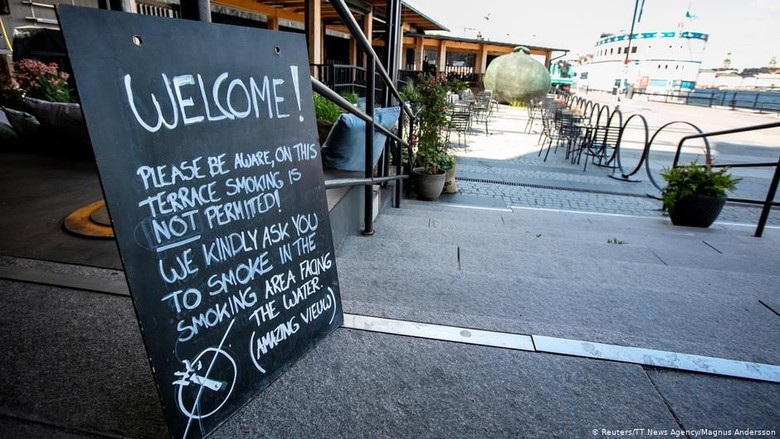 WELCOME!
PLEASE BE AWARE, ON THIS
TERRACE SMOKING IS
NOT PERMITED!
WE KINDLY ASK YOU
TO SMOKE IN THE
SMOKING AREA FACING
THE WATER
(AMAZING VIEUW)
© Reuters/TT News Agency/Magnus Andersson